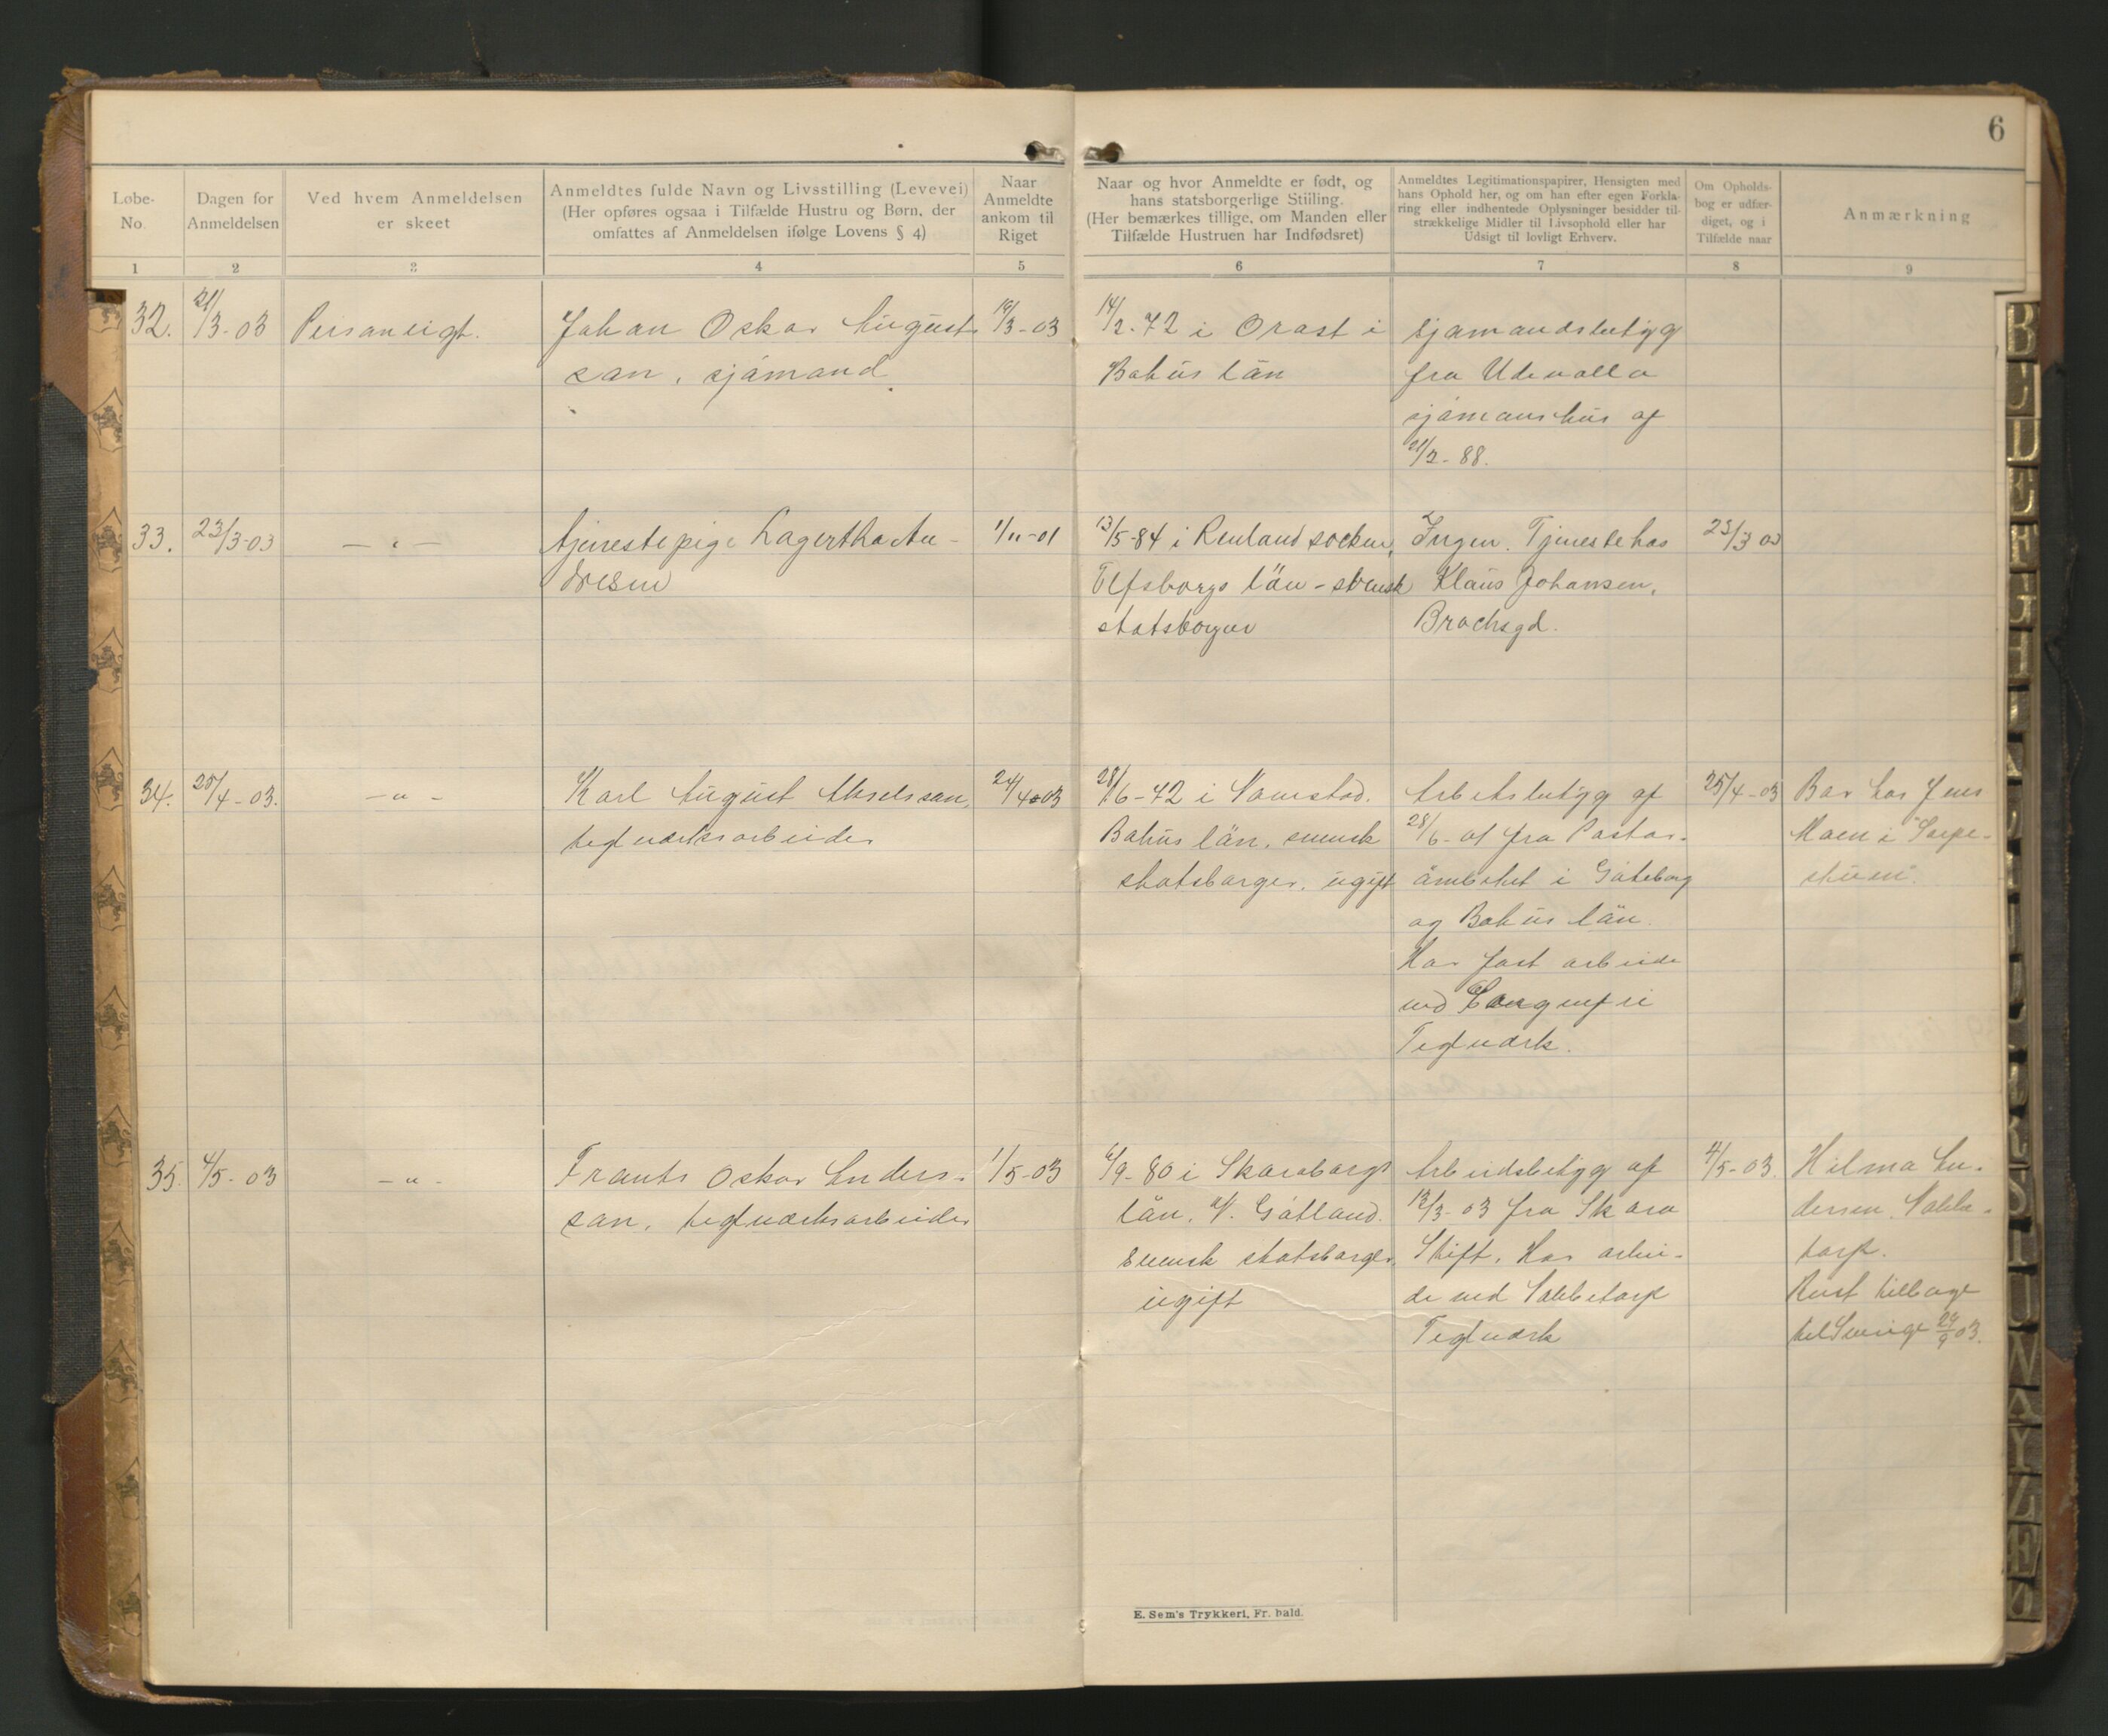 6
Løbe-
No.
Dagen for
Anmeldelsen
Ved hvem Anmeldelsen
er skeet
Anmeldtes fulde Navn og Livsstilling (Levevei)
(Her opføres ogsaa i Tilfælde Hustru og Børn, der
omfattes af Anmeldelsen ifølge Lovens § 4)
Naar
Anmeldte
ankom til
Riget
Naar og hvor Anmeldte er født, og
hans statsborgerlige Stiiling.
(Her bemærkes tillige, om Manden eller
Tilfælde Hustruen har Indfødsret)
Anmeldtes Legitimationspapirer, Hensigten med
hans Ophold her, og om han efter egen Forkla-
ring eller indhentede Oplysninger besidder til-
strækkelige Midler til Livsophold eller har
Udsigt til lovligt Erhverv.
Om Opholds-
bog er udfær-
diget, og i
Tilfælde naar
Anmærkning
1 2 3 4 5 6 7 8 9
32.
21/3-03
Personligt.
Johan Oskar August
son, sjömand
19/3-03
14/2-72 i Orost i
Bohus län
Sjömandsbetyg
fra Udevalla
sjömanshus af
21/2-88.
33.
23/3-03
— " —
tjenestepige Lagertha An-
dresen
1/11-01
13/5-84 i Renland socken,
Elfsborgs län - svensk
statsborger
Ingen. Tjeneste hos
Klaus Johansen,
Brochsgd.
23/3 03
34.
25/4-03.
— " —
Karl August Akselsson,
teglværksarbeider
24/4-03
28/6-72 i
Bohus län, svensk
statsborger, ugift
Arbetsbetyg af
28/6-01 fra Pastors-
ämbetet i Göteborg
og Bohus län.
Har fast arbeide
ved
Teglværk.
25/4-03
Bor hos Jens
Moen i "Torpe-
stuen".
35.
4/5-03
— " —
Frants Oskar Anders-
son, teglværksarbeider
1/5-03
6/9-80 i Skaraborgs
län, V. Götland.
Svensk statsborger,
ugift
Arbeidsbetyg af
13/3-03 fra Skara
Stift. Har arbei-
de ved Labbetorp
Teglværk
4/5-03.
Hilma An-
dersen, Labbe-
torp.
Reist tilbage
til Sverige 29/9 03.
E. Sem's Trykkeri, Fr. hald.